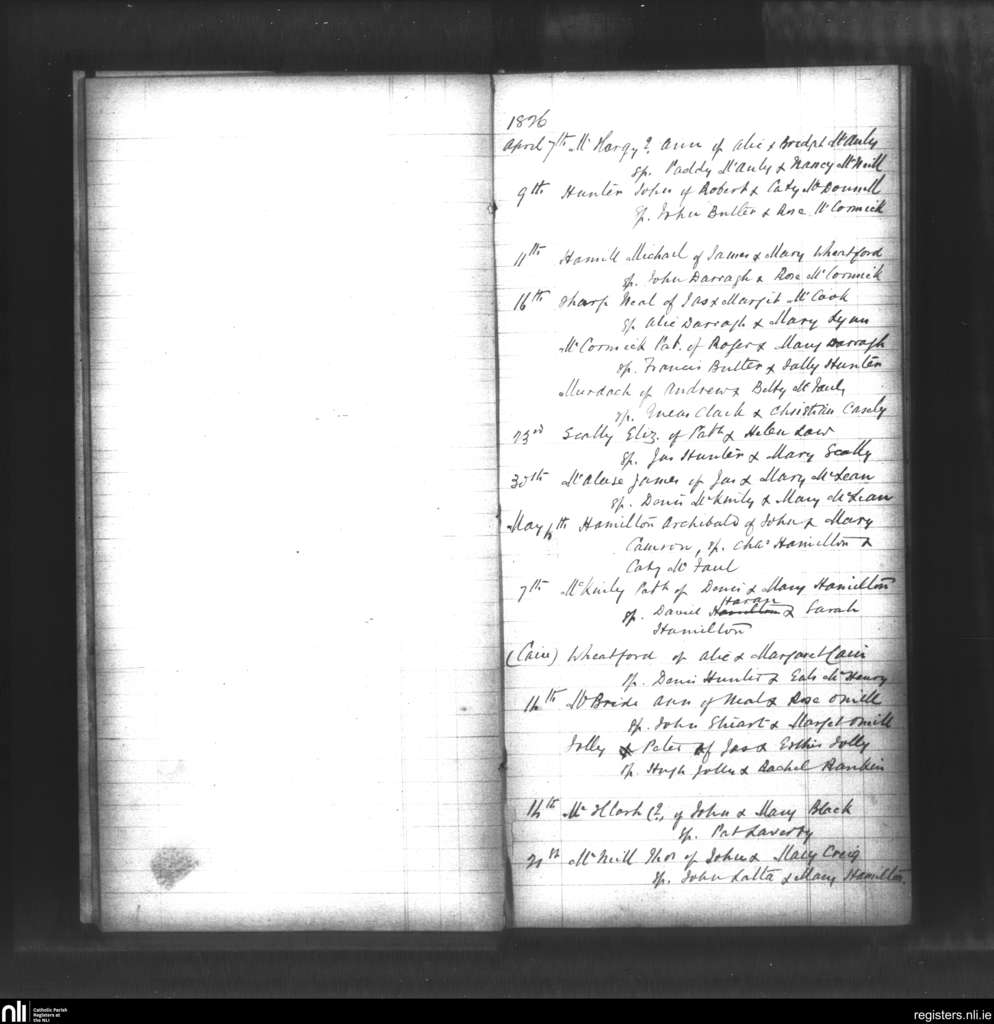 1826
April 7th McHargy? Ann of Alic & Bridgt McAuly
sp. Paddy McAuly & Nancy McNeill
9th Hunter John of Robert & Caty McDonnell
sp. John Butler & Rose McCormick
11th Hamill Michael of James & Mary Wheatford
sp. John Darragh & Rose McCormick
16th Sharp Neal of Jas & Margit McCook
sp. Alic Darragh & Mary Lynn
McCormick Pat. of Roger & Mary Darragh
sp. Francis Butler & Sally Hunter
Murdoch of Andrew & Betty McFaul
sp. Eneas Clark & Christian
23rd Scally Eliz. of Patk & Helen Law
sp. Jas Hunter & Mary Scally
30th James of Jas & Mary McLean
sp. Denis McKinly & Mary McLean
May 4th Hamilton Archibald of John & Mary
Camron, sp. Chas Hamilton &
Caty McFaul
7th McKinly Patk of Denis & Mary Hamilton
Haran
sp. Daniel Hamilton & Sarah
Hamilton
(Cain) Wheatford of Alic & Margaret Cain
sp. Denis Hunter & McHenry
14th McBride Ann of Neal & Rose Oneill
sp. John Stuart & Marget Oneill
Jolly Peter of Jas & Esther Jolly
sp. Hugh Jolly & Rachel Rankin
14th Mc (?) of John & Mary Black
sp. Pat Laverty
21st McNeill Thos of John & Mary Creig
sp. John Latta & Mary Hamilton.
nli
Catholic Parish
Registers at
the NLI
registers.nli.ie